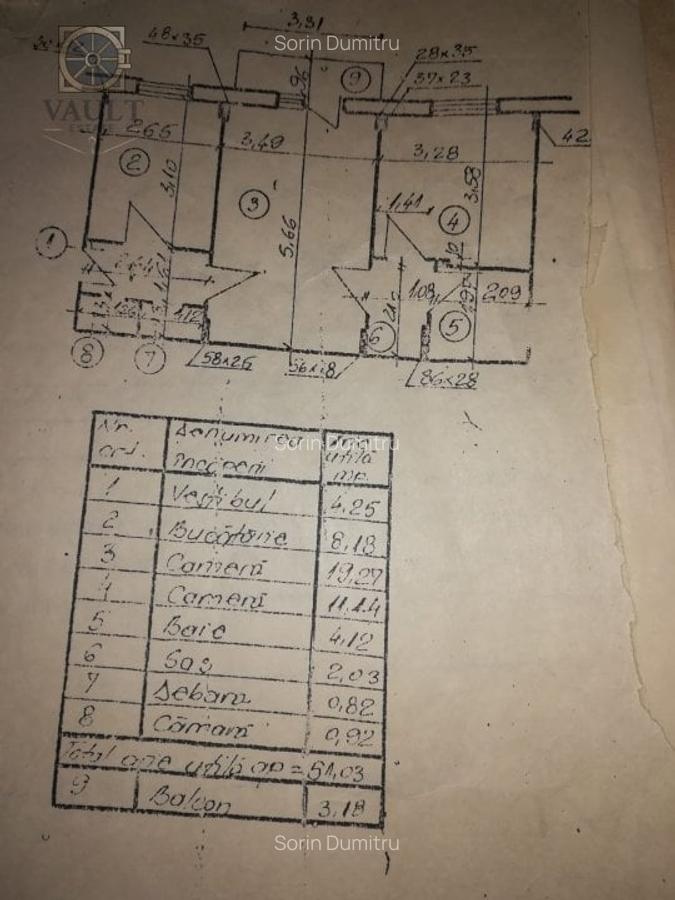 3,31
Sorin Dumitru
48×35
28×35
9
37×23
VAULT
2,65
3,49
3,28
42
2
3,10
3
5,66
3,58
1,41
4
1
1,08
2,09
5
6
8
7
58×25
56×18
86×28
Nr. crt.
Denumirea încăperii
Aria utilă mp.
Sorin Dumitru
1 Vestibul 4,25
2 Bucătărie 8,18
3 Cameră 19,27
4 Cameră 11,44
5 Baie 4,12
6 Sas 2,03
7 Debara 0,82
8 Cămară 0,92
Total arie utilă ap = 51,03
9 Balcon 3,18
Sorin Dumitru